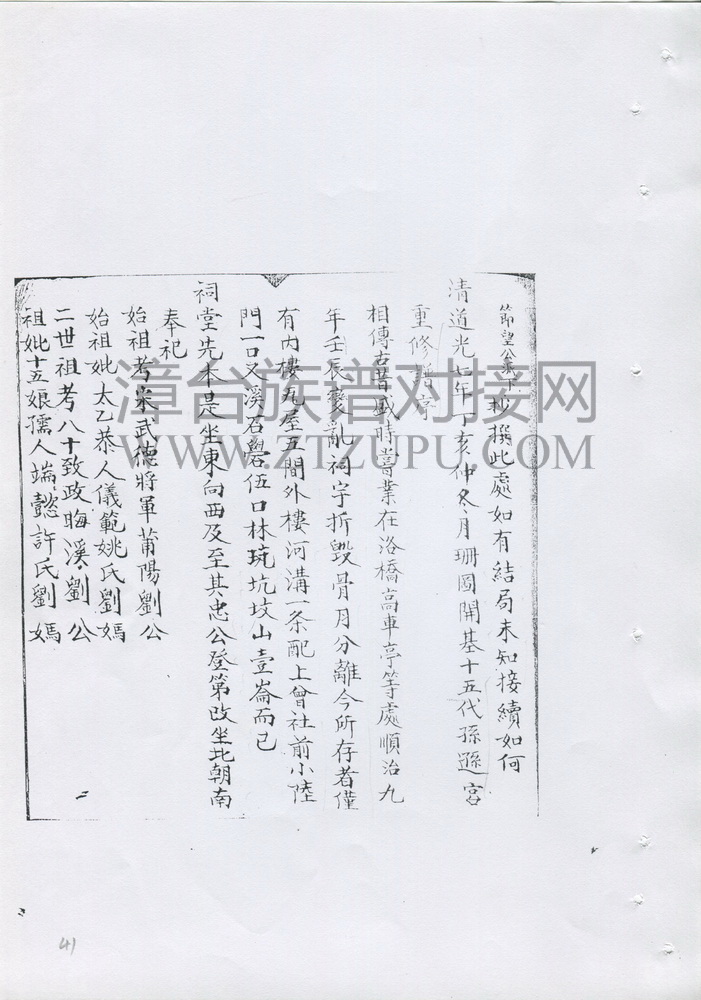 節皇公派下抄撰此處如有結局未知接續如何
清道光七年丁亥仲冬月珊圖開基十五代孫遜宮
重修譜
相傳古昔盛時嘗業在洛橋高車亭等處順治九
年壬辰變亂祠宇折毀骨月分離今所存者僅
有內樓九屋五間外樓河溝一条配上曾社前小陸
門一口又溪石礐伍口林珫坑坟山壹崙而已
祠堂先本是坐東向西及至其忠公登第改坐北朝南
奉祀
始祖考宋武德將軍莆陽劉公
始祖妣太乙恭人儀範姚氏劉媽
二世祖考八十致政晦溪劉公
祖妣十五娘孺人端懿許氏劉媽
漳台族谱对接网
WWW.ZTZUPU.COM
41